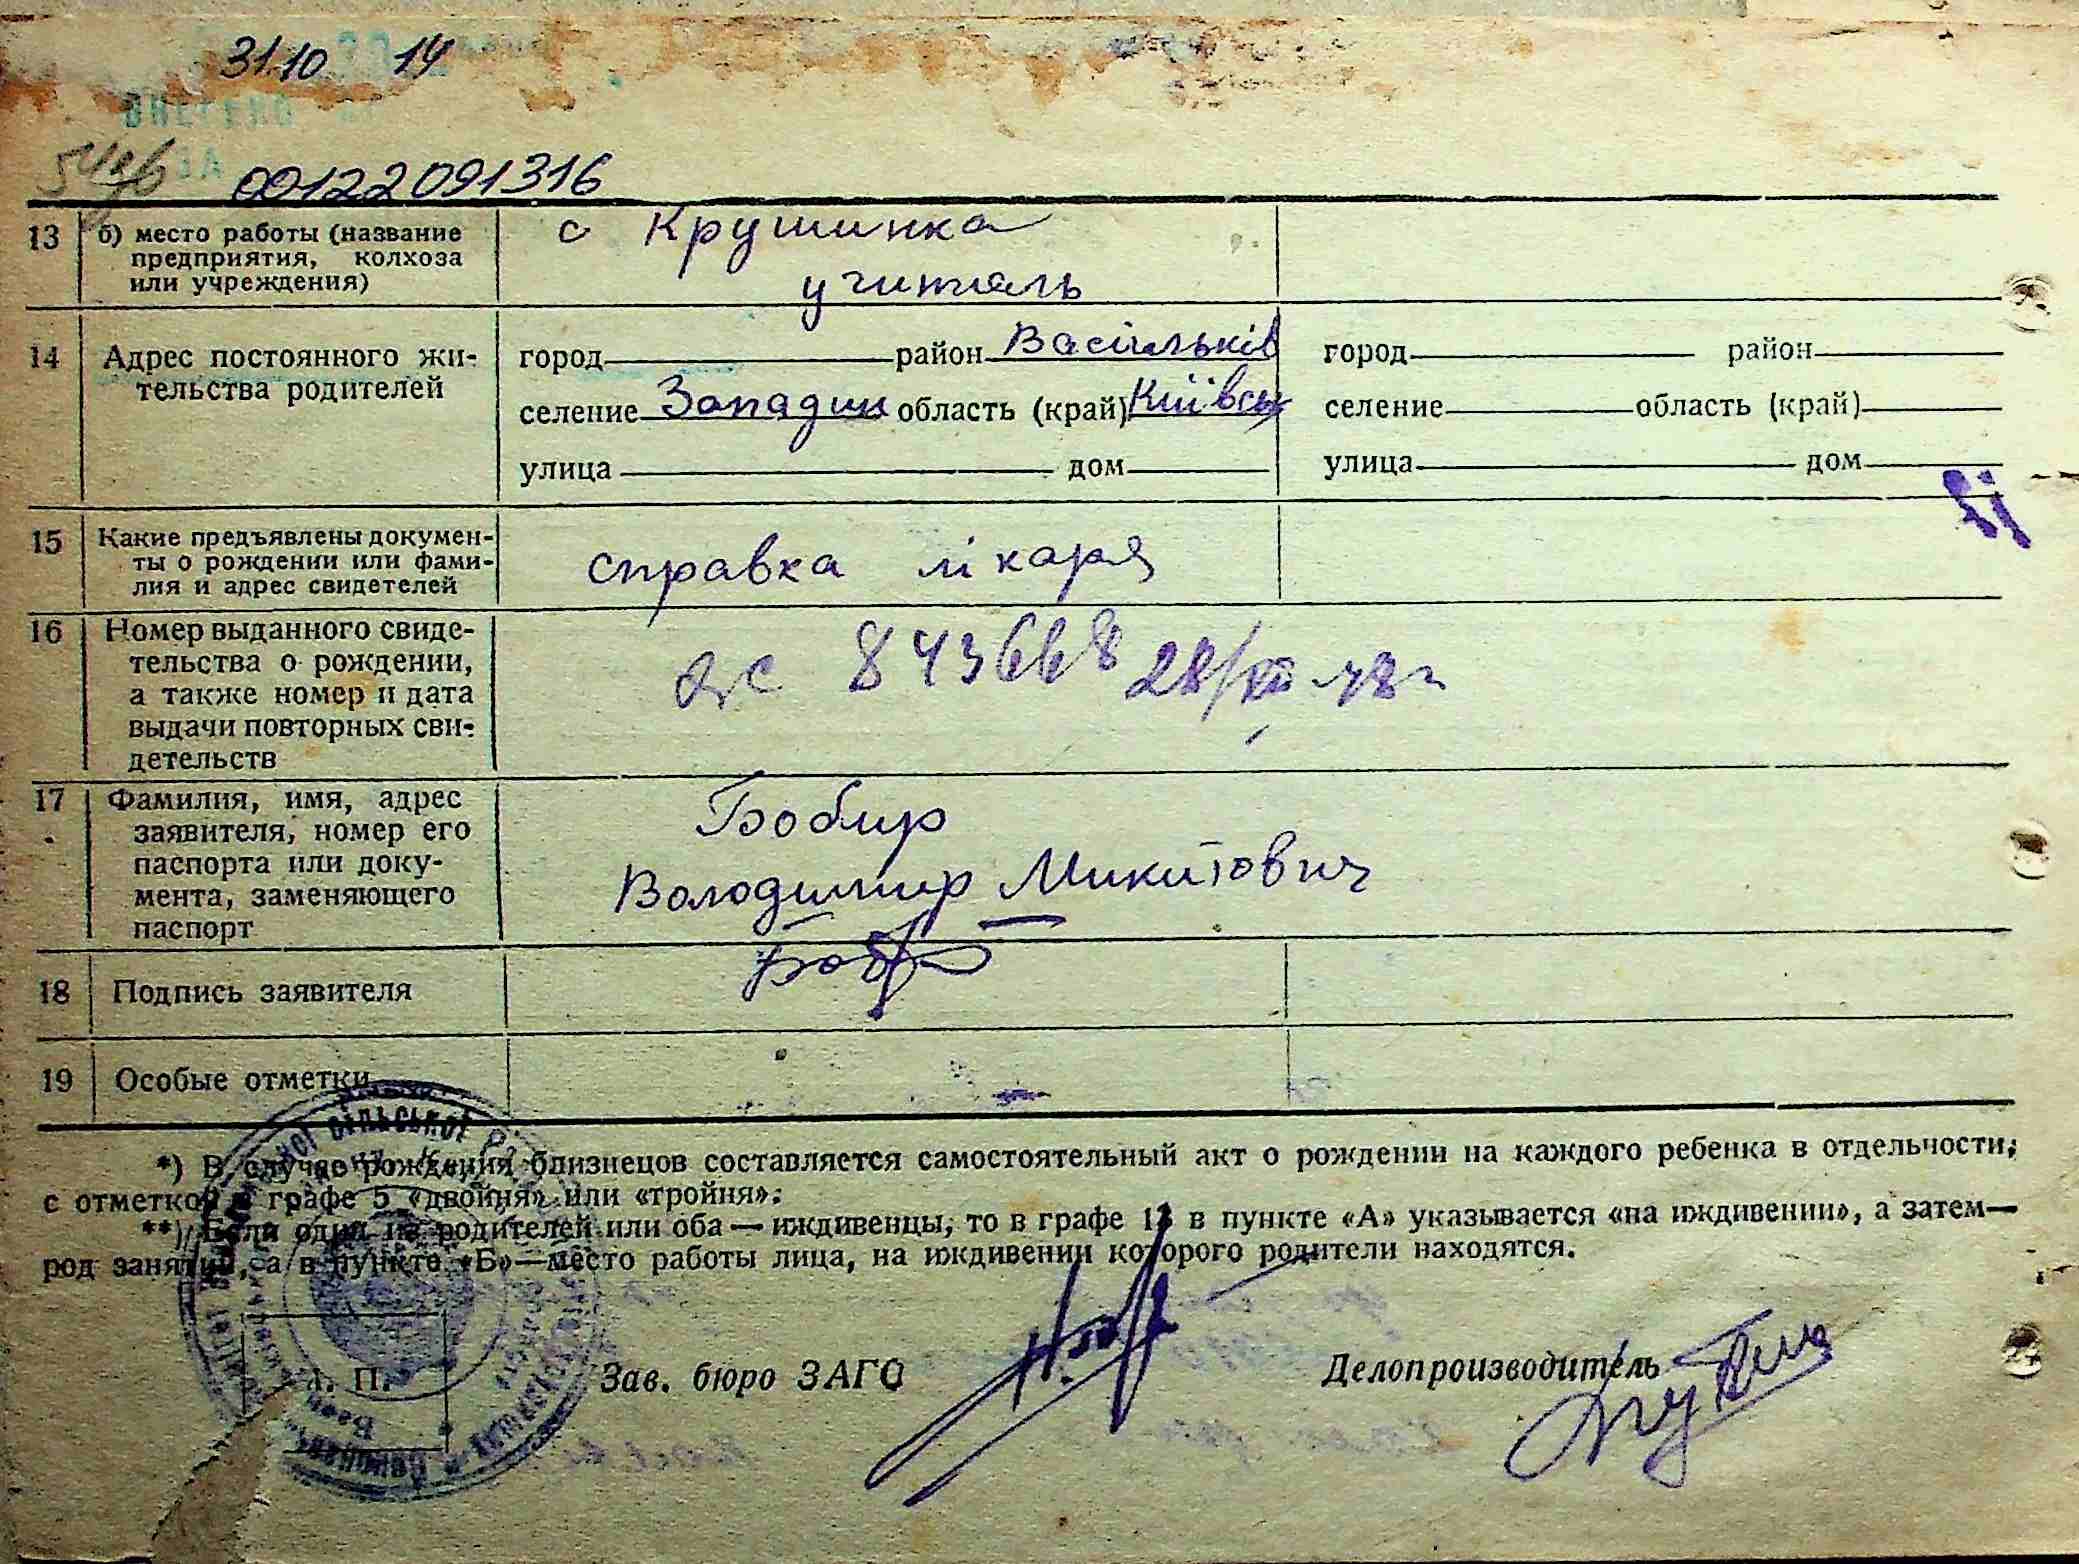 31.10 14
ВНЕСЕНО
00122091316
13 б) место работы (название предприятия, колхоза или учреждения)
с Крушинка
учитель
14 Адрес постоянного жи-
тельства родителей
город район Васильків
селение Западин область (край) Київськ
улица дом
город район
селение область (край)
улица дом
15 Какие предъявлены докумен-
ты о рождении или фами-
лия и адрес свидетелей
справка лікаря
16 Номер выданного свиде-
тельства о рождении,
а также номер и дата
выдачи повторных сви-
детельств
843668 28/XII 48 г
17 Фамилия, имя, адрес
заявителя, номер его
паспорта или доку-
мента, заменяющего
паспорт
Бобир
Володимир Микитович
18 Подпись заявителя
19 Особые отметки
*) В случае рождения близнецов составляется самостоятельный акт о рождении на каждого ребенка в отдельности,
с отметкой в графе 5 «двойня» или «тройня».
**) Если один из родителей или оба — иждивенцы, то в графе 13 в пункте «А» указывается «на иждивении», а затем—
род занятий, а в пункте «Б»—место работы лица, на иждивении которого родители находятся.
сільської
М. П.
Зав. бюро ЗАГС
Делопроизводитель